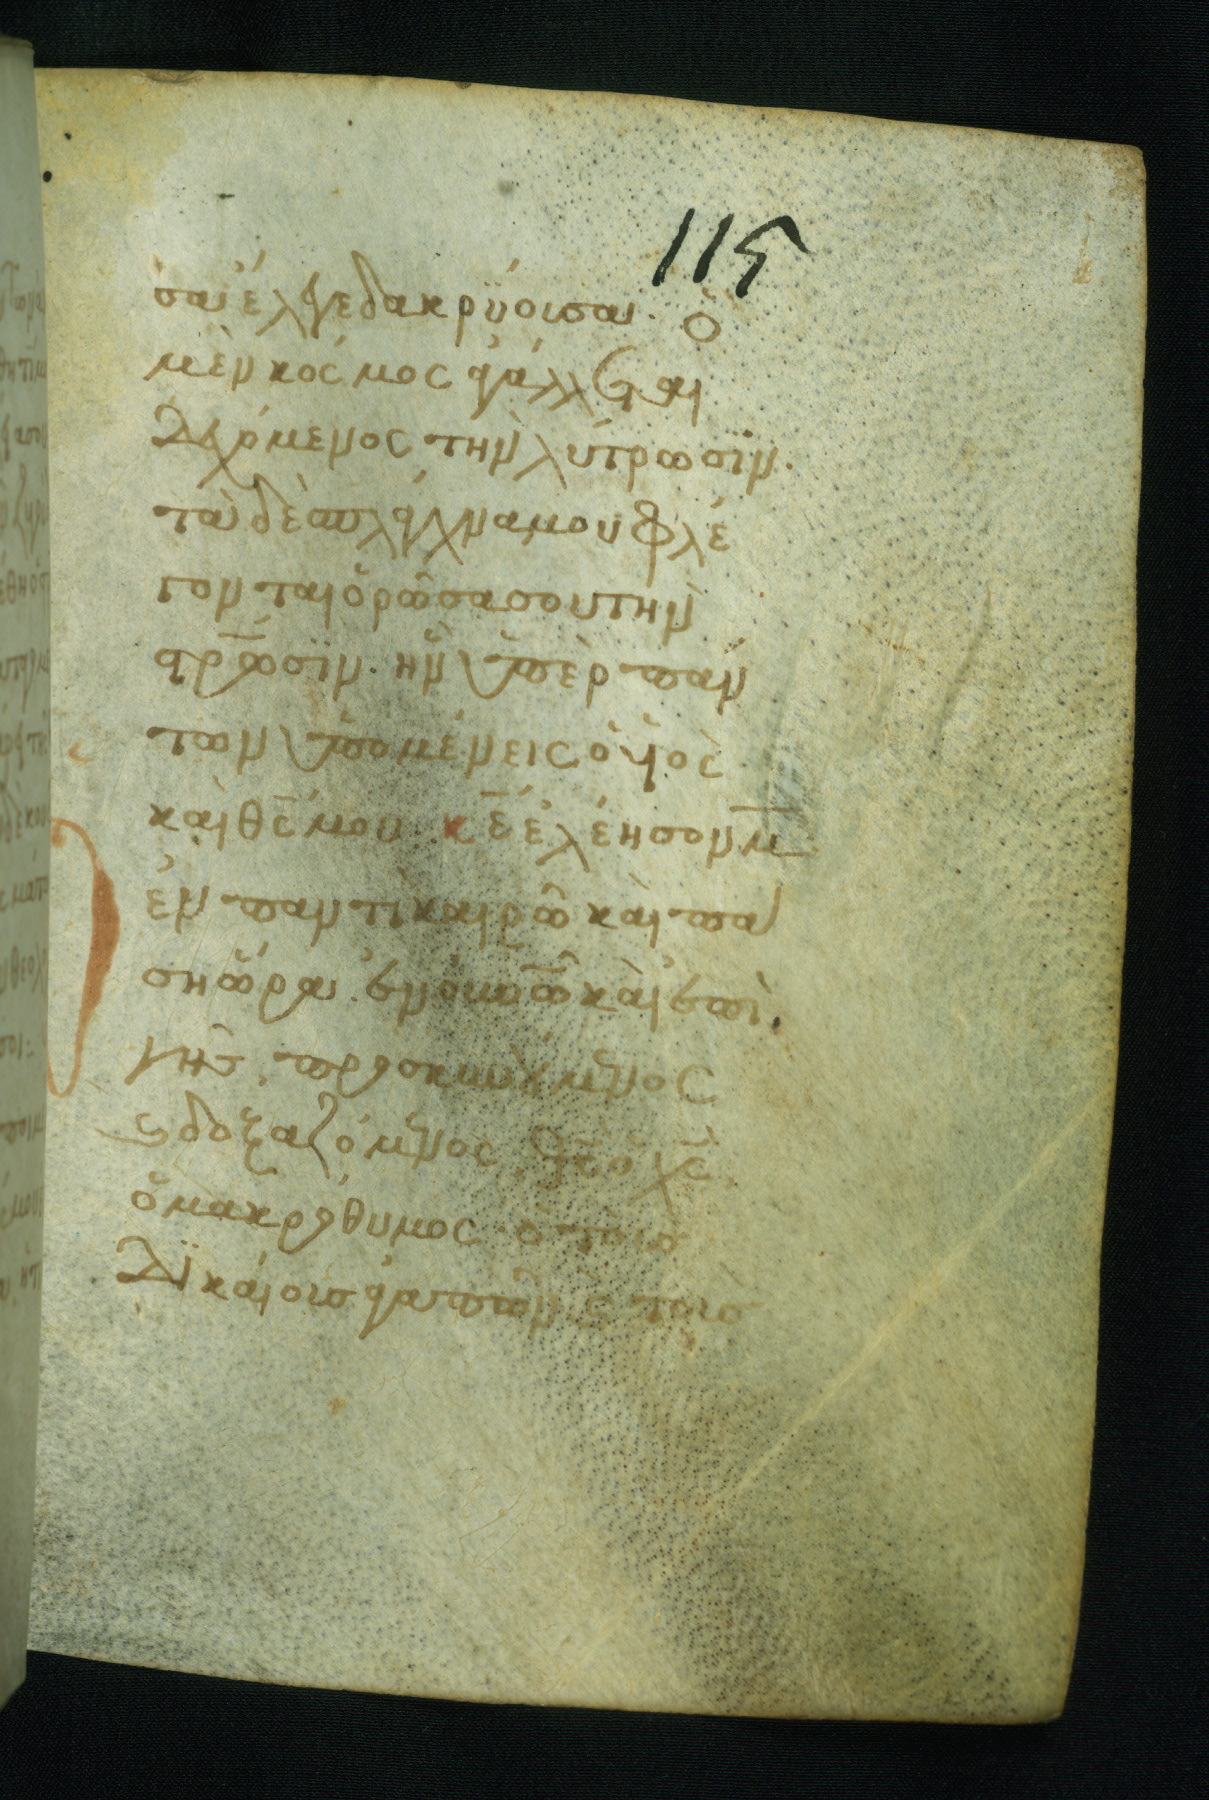 115
σα ἔλεγε δακρύουσα· Ὁ
μὲν κόσμος ἀγάλλεται
δεχόμενος τὴν λύτρωσϊν·
τὰ δὲ σπλάγχνα μου φλέ
γονται ὁρώσα σου τὴν
στ̅ρωσϊν· ἣν ὑπὲρ πάν
των ὑπομένεις ὁ υἱὸς
καὶ θ̅ς μου· κ̅ε ἐλέησον
ἐν παντὶ καιρῶ καὶ πά
ση ὥρα· ἐν ο̅υ̅ν̅ω̅ καὶ ἐπὶ
γῆς προσκυνούμενος
καὶ δοξαζόμενος χ̅ε ὁ θ̅ς
ὁ μακρόθυμος· ὁ τοὺς
δϊκαίους ἀγαπῶν καὶ τοὺς